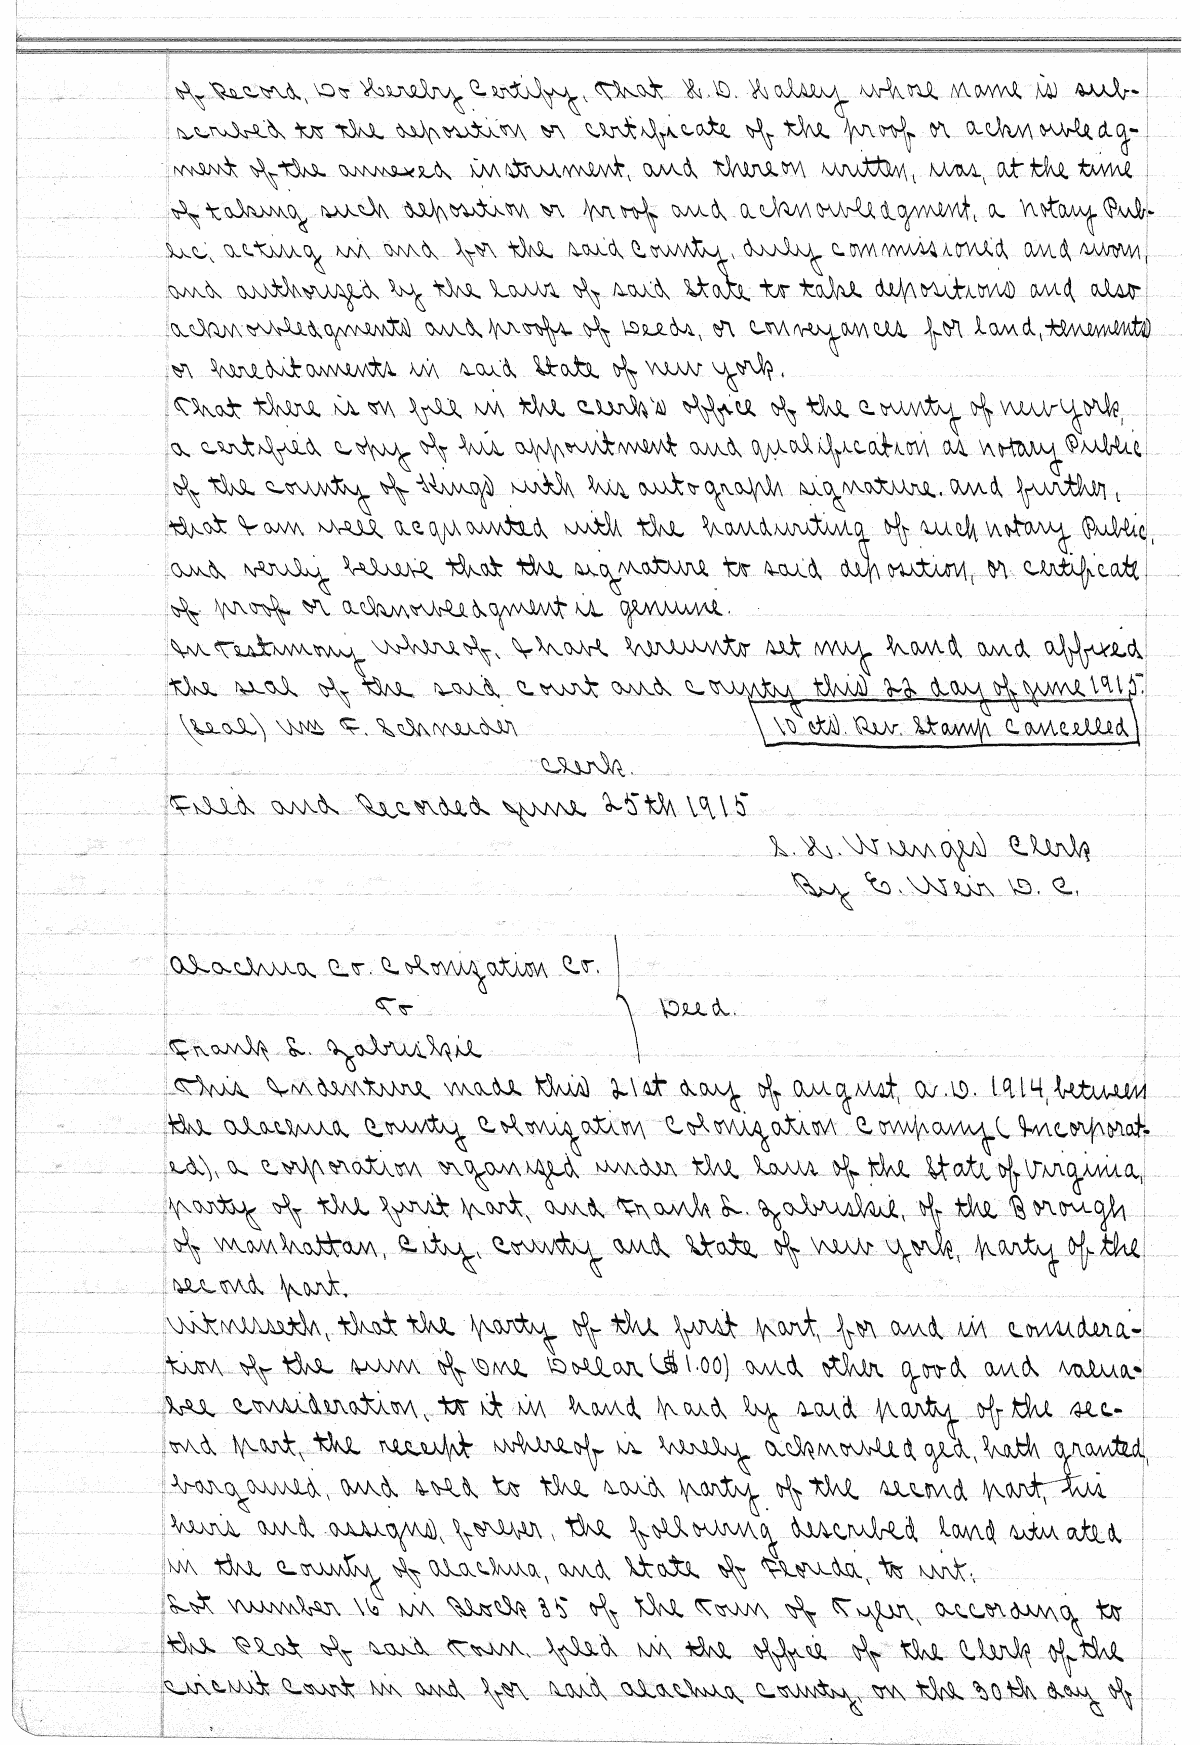 of Record, Do Hereby Certify, That H. D. Halsey whose name is sub-
scribed to the deposition or certificate of the proof or acknowledg-
ment of the annexed instrument, and thereon written, was, at the time
of taking such deposition or proof and acknowledgment, a Notary Pub-
lic, acting in and for the said County, duly commissioned and sworn,
and authorized by the laws of said State to take depositions and also
acknowledgments and proofs of Deeds, or conveyances for land, tenements
or hereditaments in said State of New York.
That there is on file in the Clerk's office of the County of New York,
a certified copy of his appointment and qualification as Notary Public
of the County of Kings with his autograph signature. and further,
that I am well acquainted with the handwriting of such Notary Public,
and verily believe that the signature to said deposition, or certificate
of proof or acknowledgment is genuine.
In Testimony Whereof, I have hereunto set my hand and affixed
the seal of the said Court and County this 22 day of June 1915.
(Seal) Wm F. Schneider
10 cts. Rev. Stamp Cancelled
Clerk.
Filed and Recorded June 25th 1915
S. H. Wienges Clerk
By E. Weir D. C.
Alachua Co. Colonization Co.
To
Deed.
Frank L. Zabriskie
This Indenture made this 21st day of August, A.D. 1914, between
the Alachua County Colonization Colonization Company (Incorporat-
ed), a corporation organized under the laws of the State of Virginia,
party of the first part, and Frank L. Zabriskie, of the Borough
of Manhattan, City, County and State of New York, party of the
second part.
Witnesseth, that the party of the first part, for and in considera-
tion of the sum of One Dollar ($1.00) and other good and valua-
ble consideration, to it in hand paid by said party of the sec-
ond part, the receipt whereof is hereby acknowledged, hath granted,
bargained, and sold to the said party of the second part, his
heirs and assigns, forever, the following described land situated
in the County of Alachua, and State of Florida, to wit:
Lot number 16 in Block 35 of the Town of Tyler, according to
the Plat of said Town, filed in the office of the Clerk of the
Circuit Court in and for said Alachua County, on the 30th day of